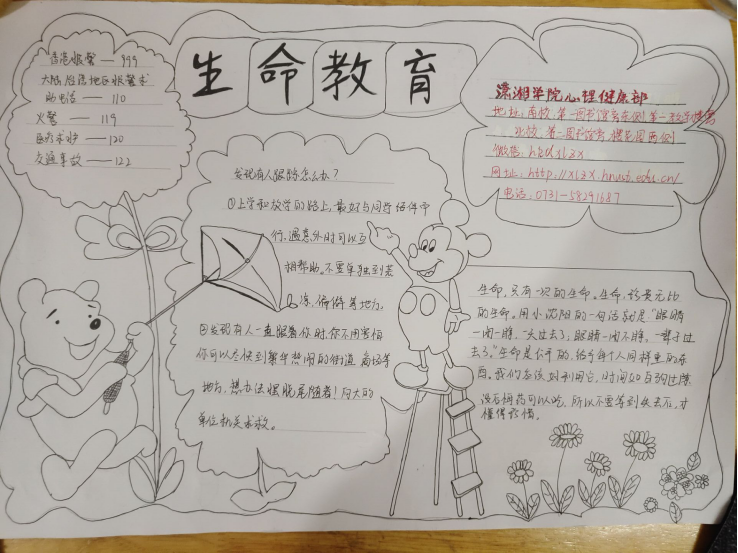 生命教育
香港报警——999
大陆台湾地区报警求
助电话——110
火警——119
医疗求护——120
交通事故——122
潇湘学院心理健康部
地址:南校 第一图书馆东侧 第一教学楼
北校 第二图书馆旁 樱花园西侧
微信:hkdxlzx
网址:http://xlzx.hnust.edu.cn/
电话:0731-58291687
发现有人跟踪怎么办?
①上学和放学的路上,最好与同学结伴同
行,遇意外时可以互
相帮助。不要单独到荒
凉,偏僻某地方。
②发现有人一直跟着你时,你不用害怕
你可以尽快到繁华热闹的街道 商场等
地方,想办法摆脱尾随者!向大的
单位机关求救。
生命,只有一次的生命。生命,珍贵无比
的生命。用小沈阳的一句话就是"眼睛
一闭一睁,一天过去了,眼睛一闭不睁,一辈子过
去了。"生命是公平的,给予每个人同样重的东
西。我们应该好利用它。时间如白驹过隙
没后悔药可以吃,所以不要等到失去右,才
懂得珍惜。